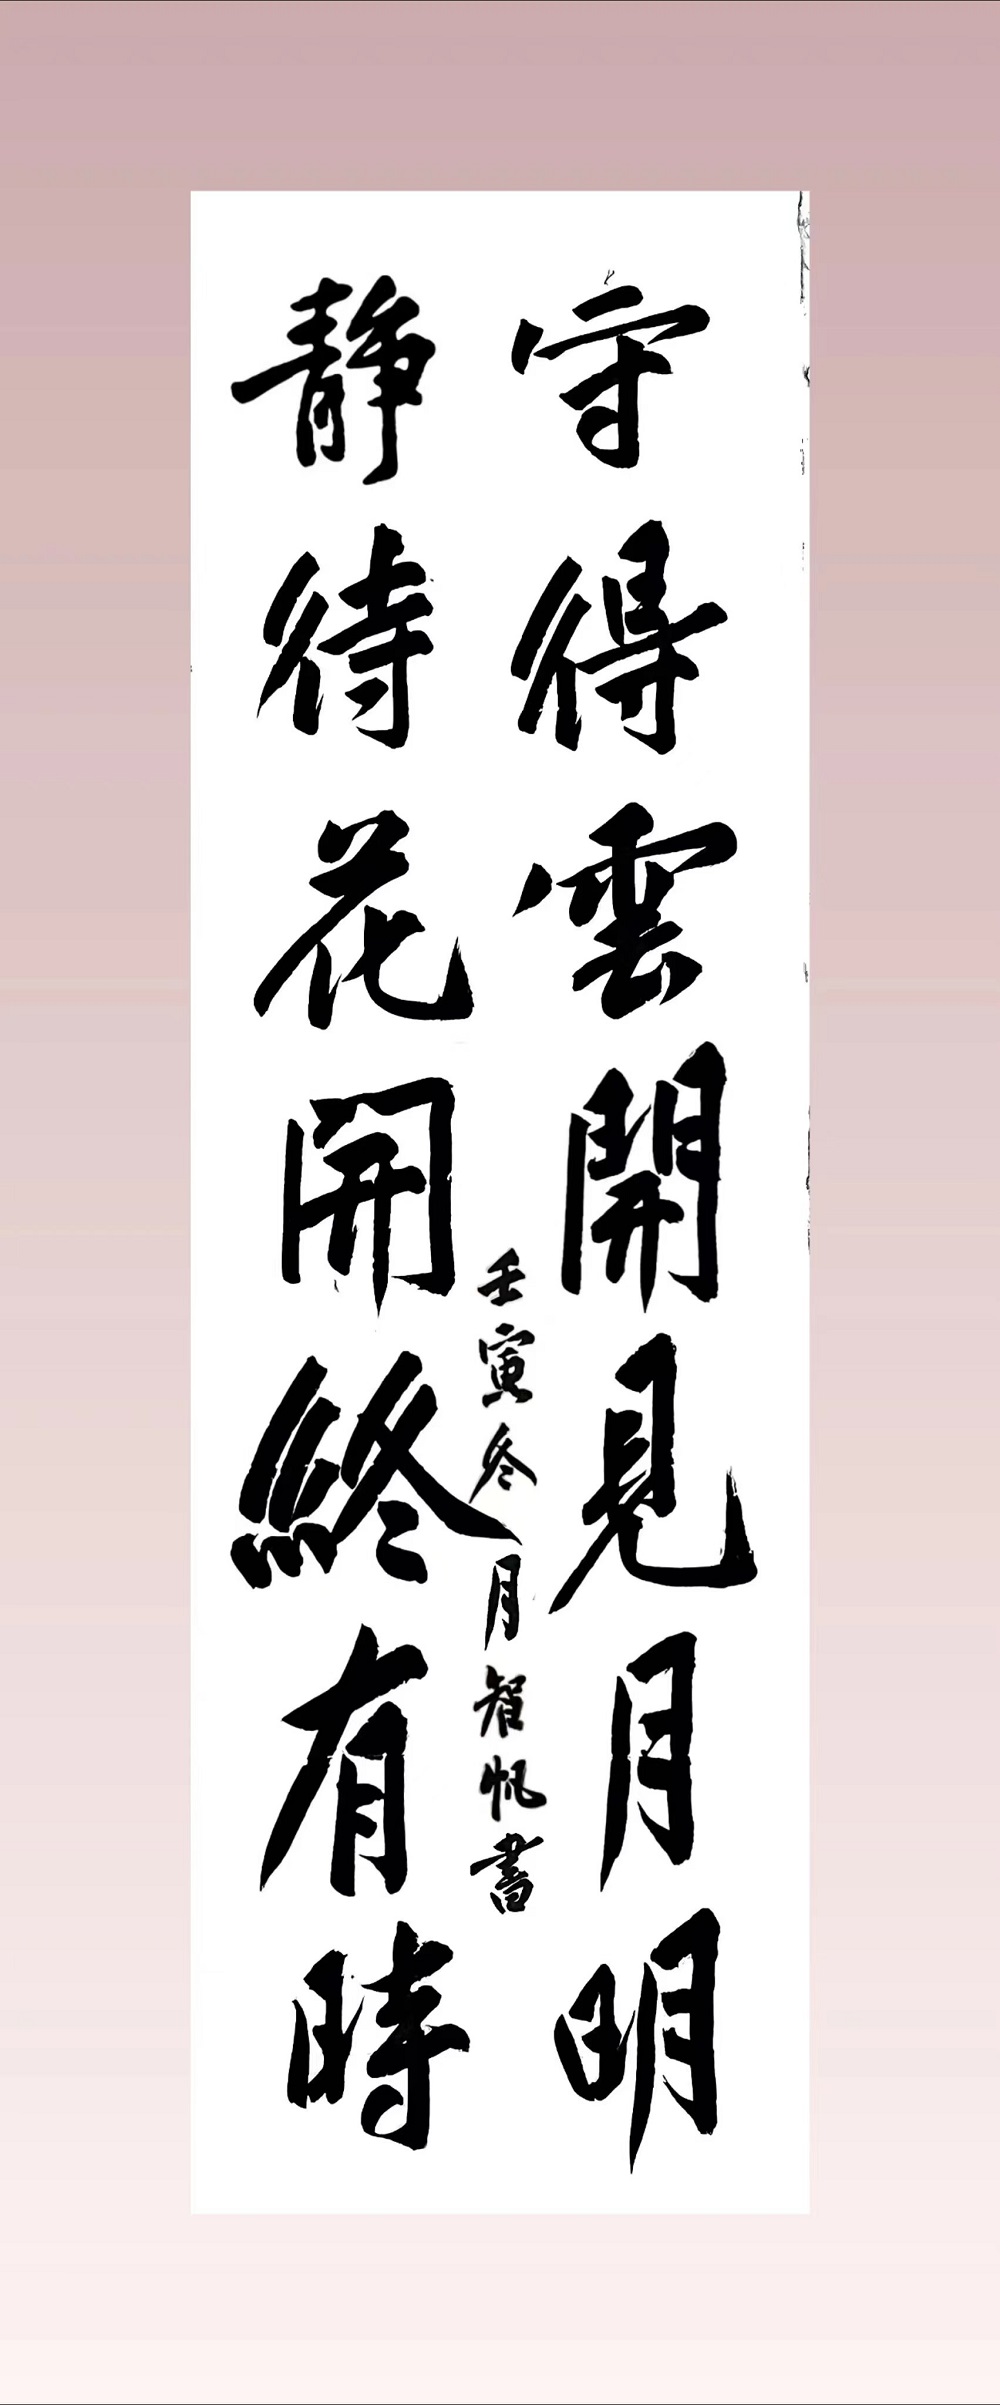 守得雲開見月明
靜待花開終有時
壬寅冬月智帆書